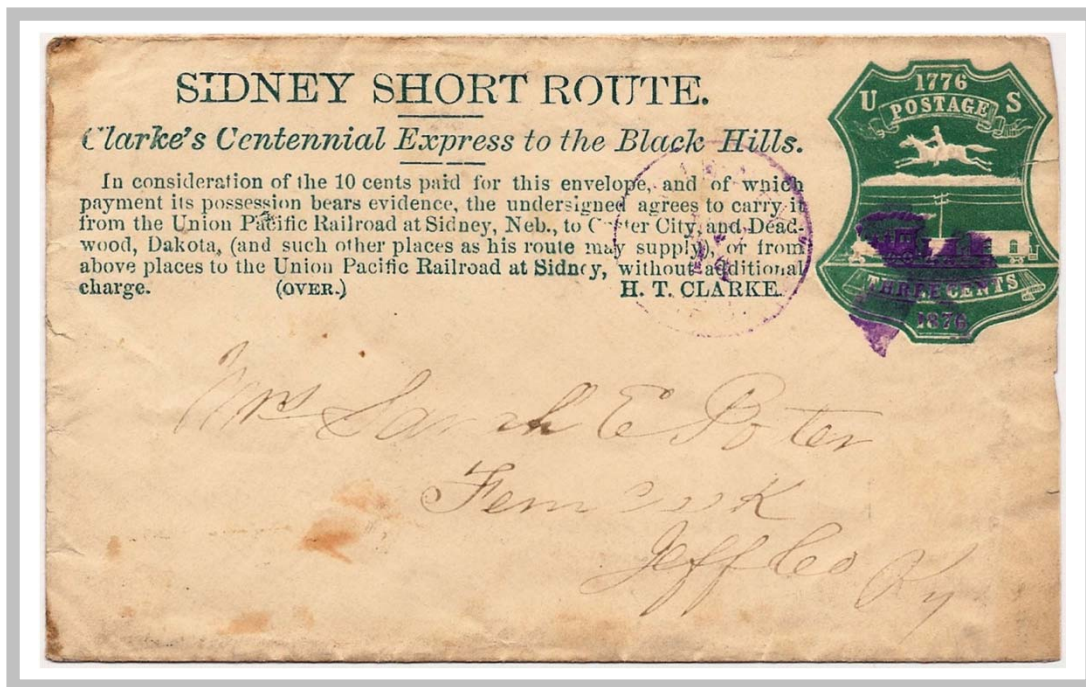 SIDNEY SHORT ROUTE.
Clarke's Centennial Express to the Black Hills.
In consideration of the 10 cents paid for this envelope, and of which
payment its possession bears evidence, the undersigned agrees to carry it
from the Union Pacific Railroad at Sidney, Neb., to Custer City, and Dead-
wood, Dakota, (and such other places as his route may supply), or from
above places to the Union Pacific Railroad at Sidney, without additional
charge. (OVER.) H. T. CLARKE.
1776
U POSTAGE S
THREE CENTS
1876
Mrs Sarah E
Jeff Co Ky